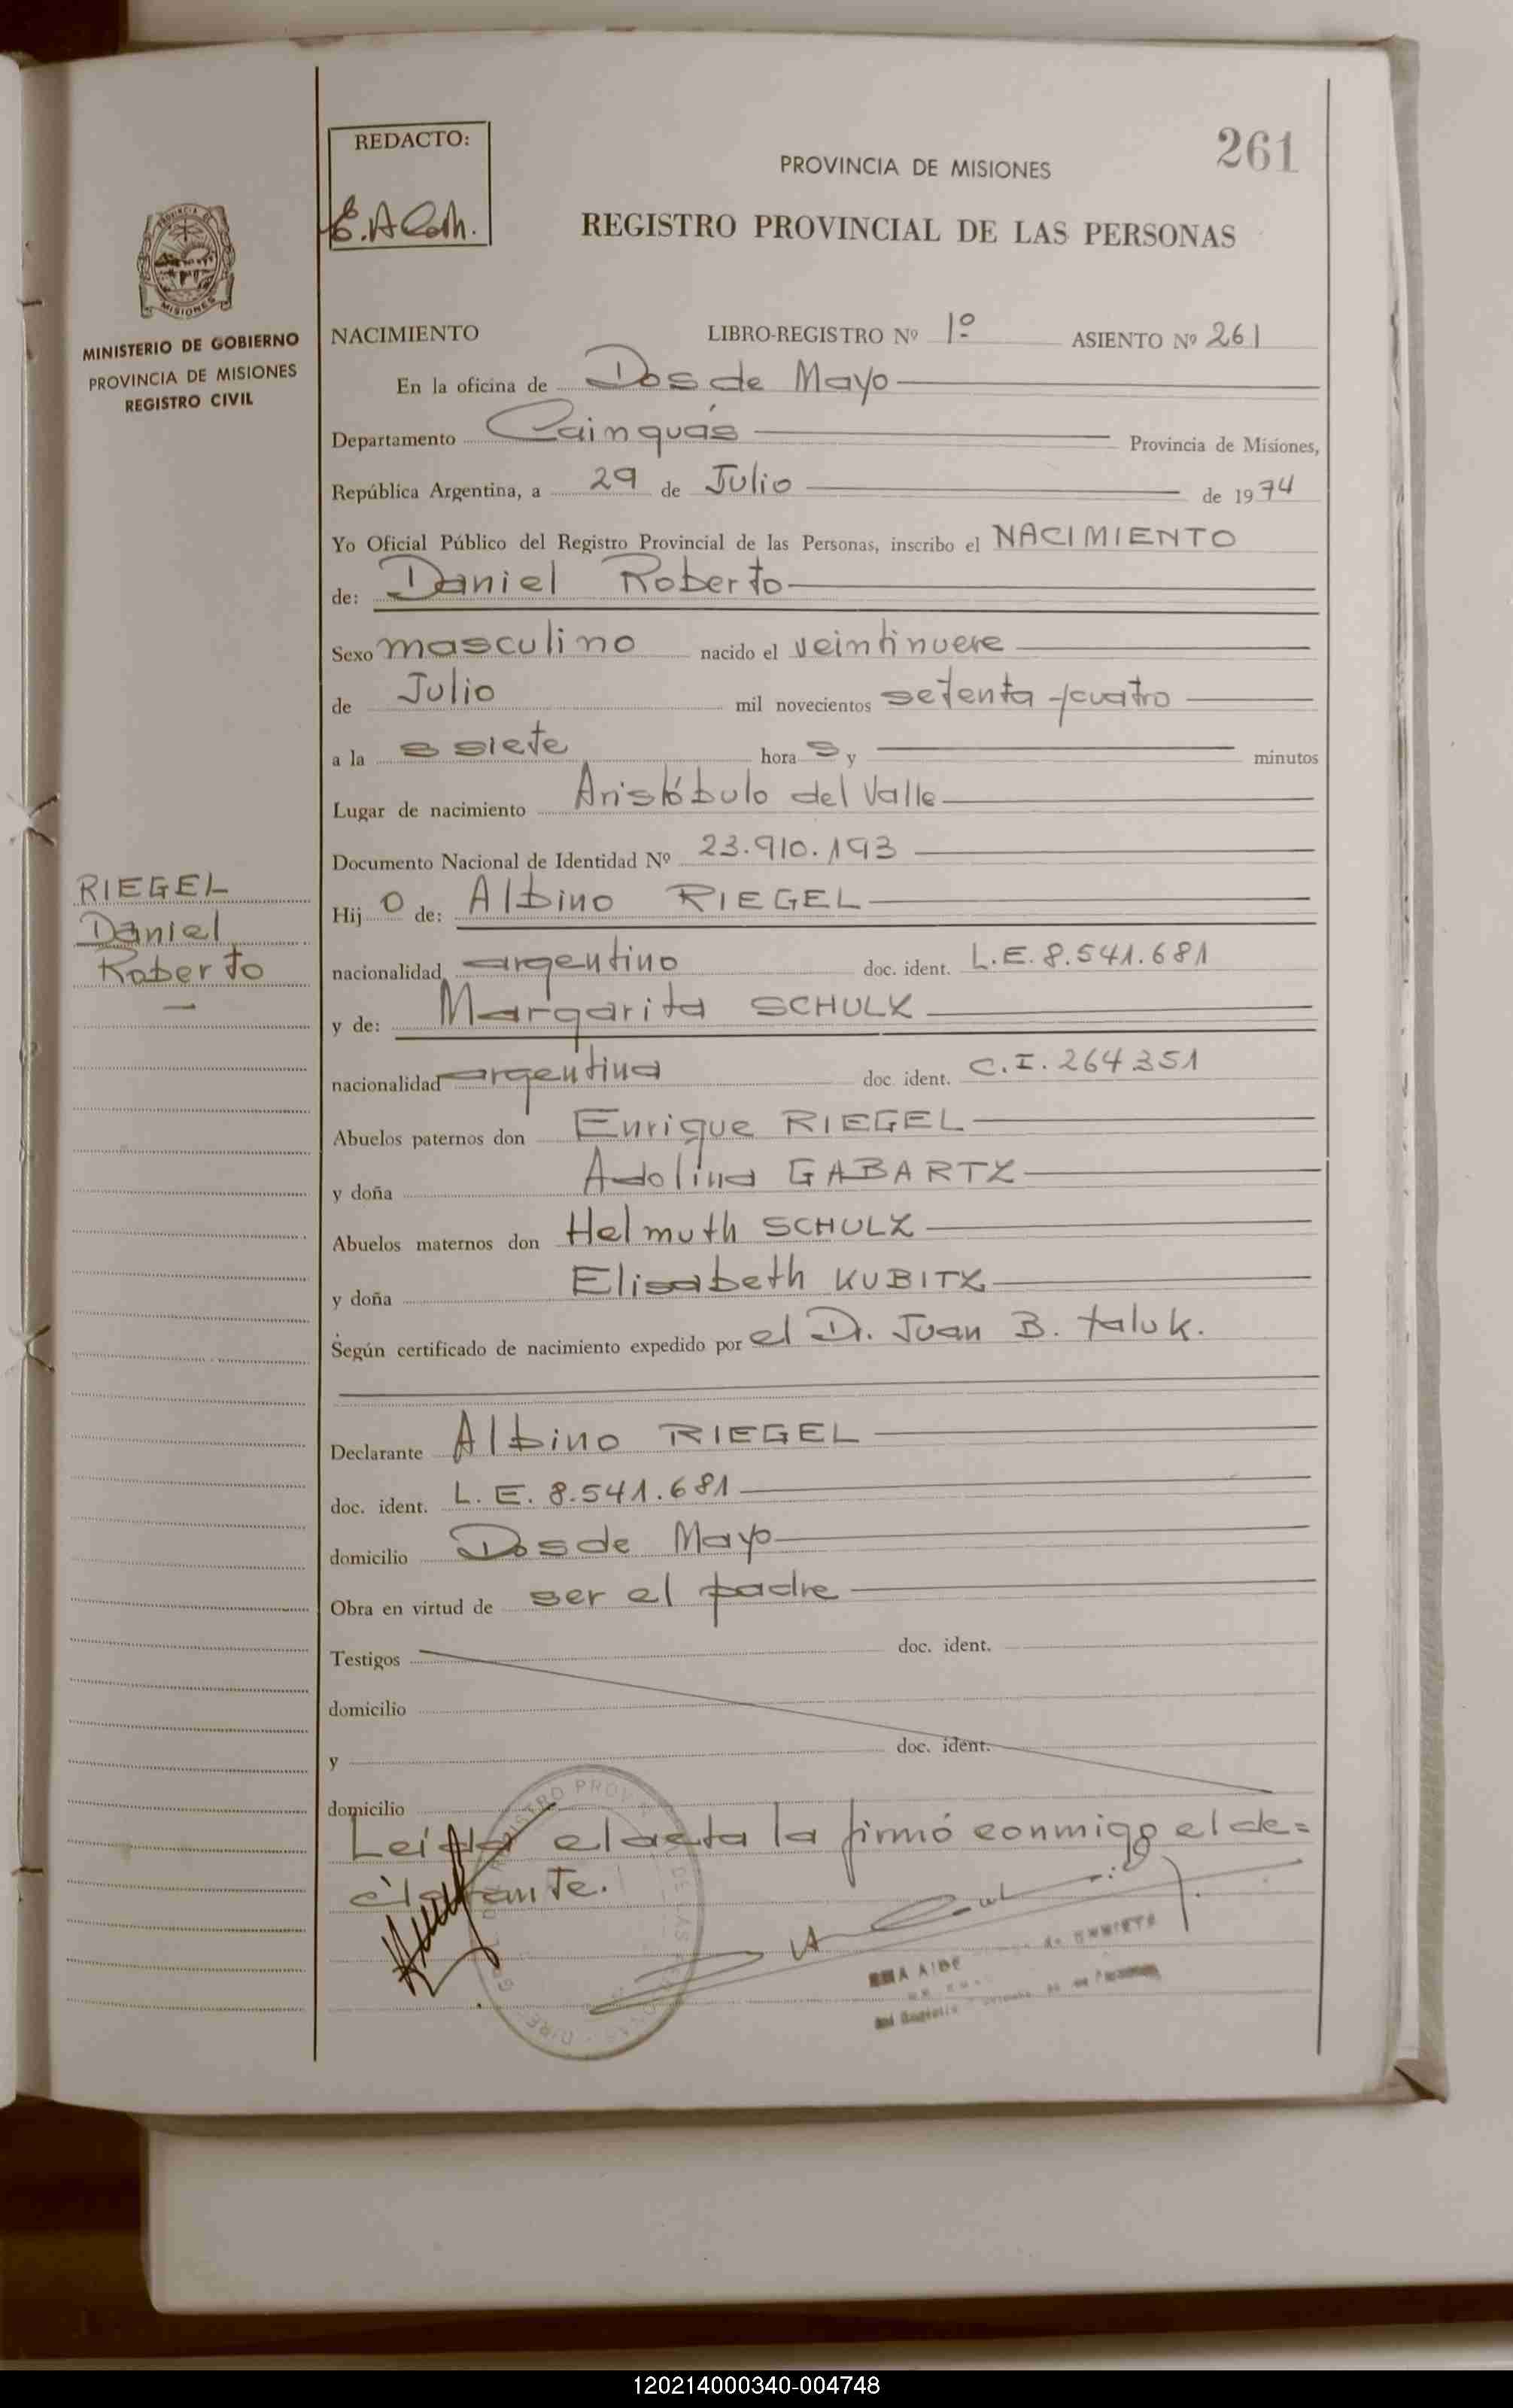 261
REDACTO:
PROVINCIA DE MISIONES
REGISTRO PROVINCIAL DE LAS PERSONAS
MISIONES
MINISTERIO DE GOBIERNO
PROVINCIA DE MISIONES
REGISTRO CIVIL
NACIMIENTO LIBRO-REGISTRO Nº 1º ASIENTO Nº 261
En la oficina de Dos de Mayo
Departamento Cainguás Provincia de Misiones,
República Argentina, a 29 de Julio de 1974
Yo Oficial Público del Registro Provincial de las Personas, inscribo el NACIMIENTO
de: Daniel Roberto
Sexo masculino nacido el veintinueve
de Julio mil novecientos setenta y cuatro
a la s siete hora s y minutos
Lugar de nacimiento Aristóbulo del Valle
Documento Nacional de Identidad Nº 23.910.193
RIEGEL
Daniel
Roberto
Hij o de: Albino RIEGEL
nacionalidad argentino doc. ident. L.E. 8.541.681
y de: Margarita SCHULZ
nacionalidad argentina doc. ident. C.I. 264351
Abuelos paternos don Enrique RIEGEL
y doña Adolina GABARTZ
Abuelos maternos don Helmuth SCHULZ
y doña Elisabeth KUBITZ
Según certificado de nacimiento expedido por el Dr. Juan B. taluk.
Declarante Albino RIEGEL
doc. ident. L. E. 8.541.681
domicilio Dos de Mayo
Obra en virtud de ser el padre
Testigos doc. ident.
domicilio
y doc. ident.
domicilio
Leída el acta la firmó conmigo el de=
clarante.
120214000340-004748